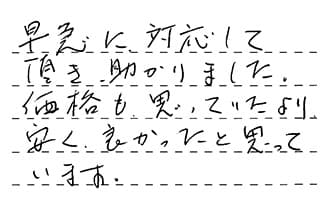 早急に対応して
頂き、助かりました。
価格も思っていたより、
安く、良かったと思って
います。